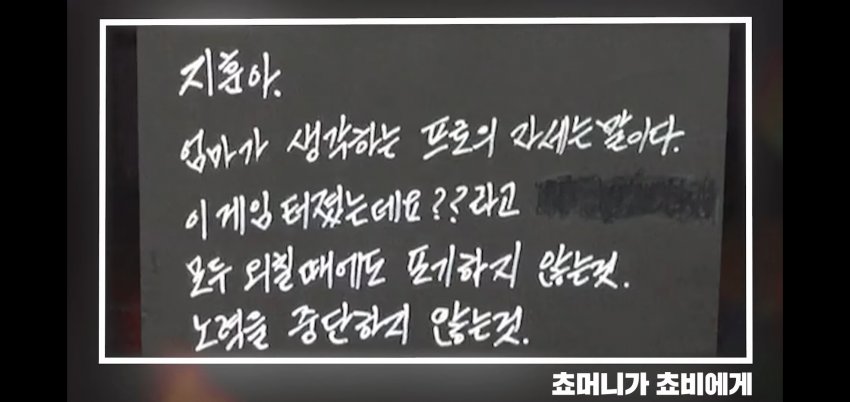 지훈아.
엄마가 생각하는 프로의 자세는 말이다.
이 게임 터졌는데요??라고
모두 외칠때에도 포기하지 않는것.
노력을 중단하지 않는것.
쵸머니가 쵸비에게